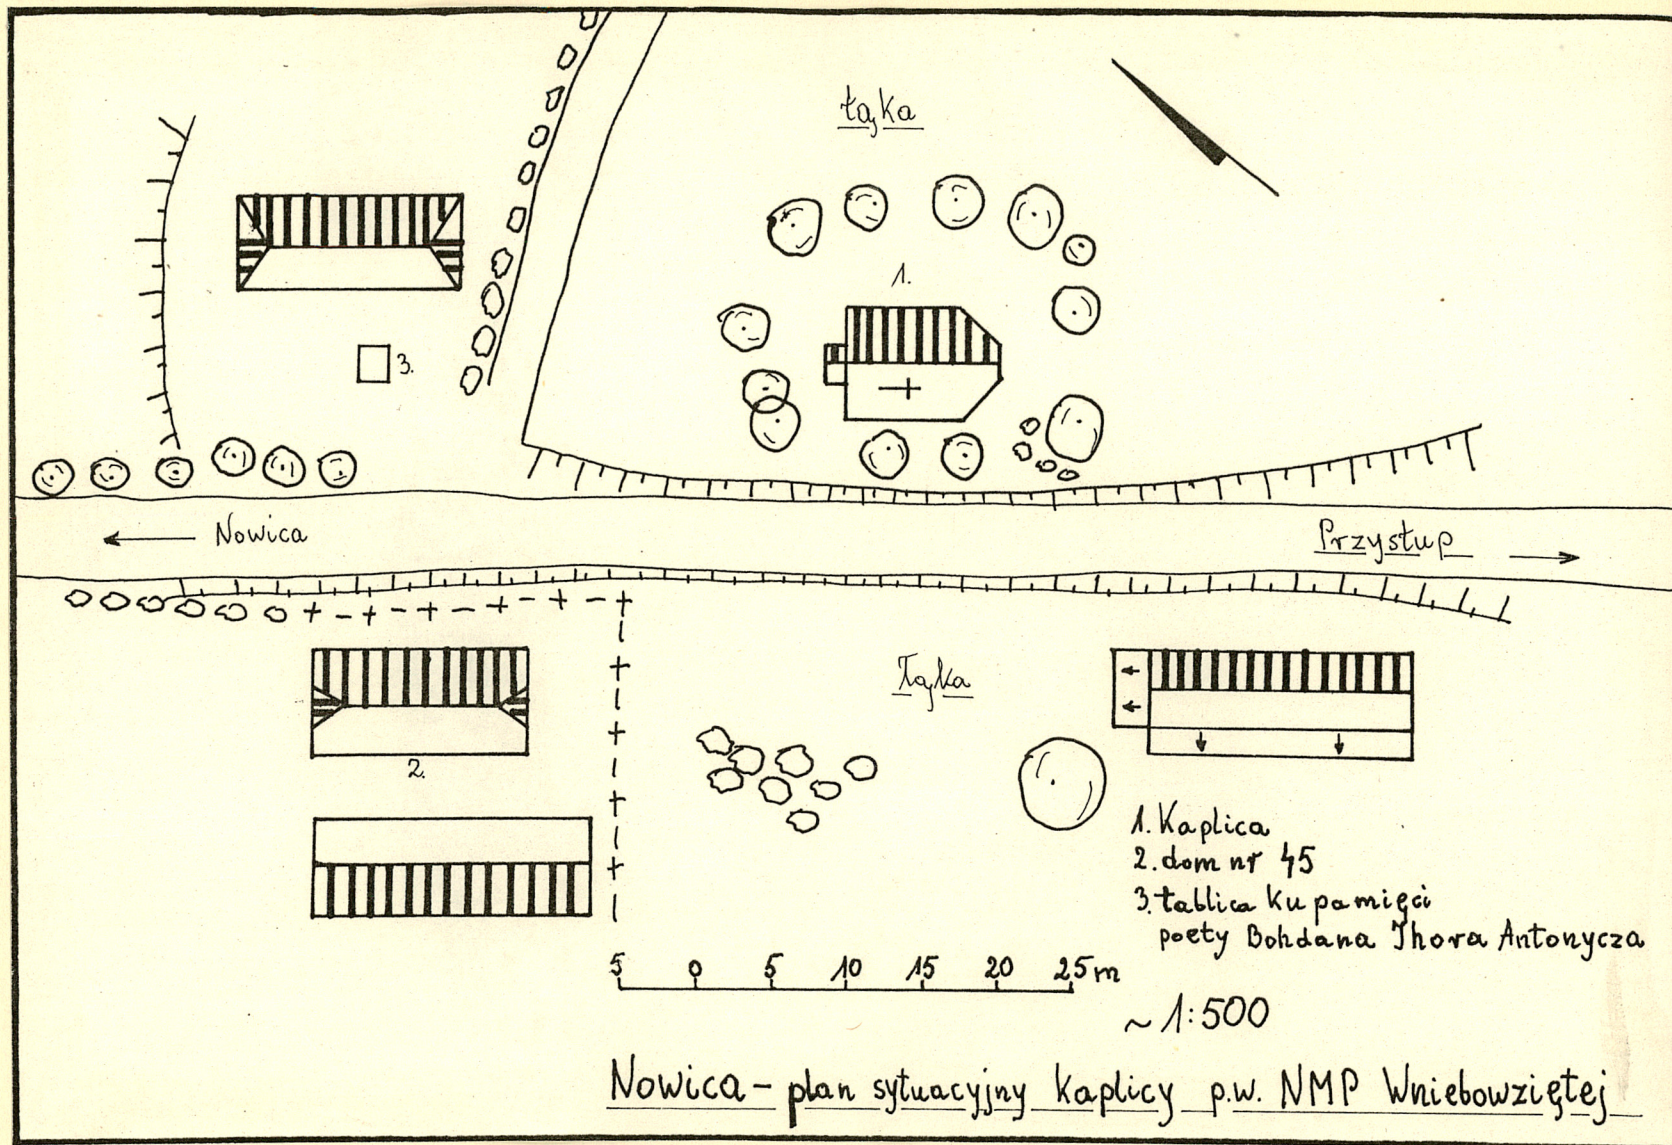 łąka
1.
3.
← Nowica
Przysłup →
Łąka
2.
1. Kaplica
2. dom nr 45
3. tablica ku pamięci
poety Bohdana Ihora Antonycza
5 0 5 10 15 20 25 m
~ 1:500
Nowica - plan sytuacyjny kaplicy p.w. NMP Wniebowziętej